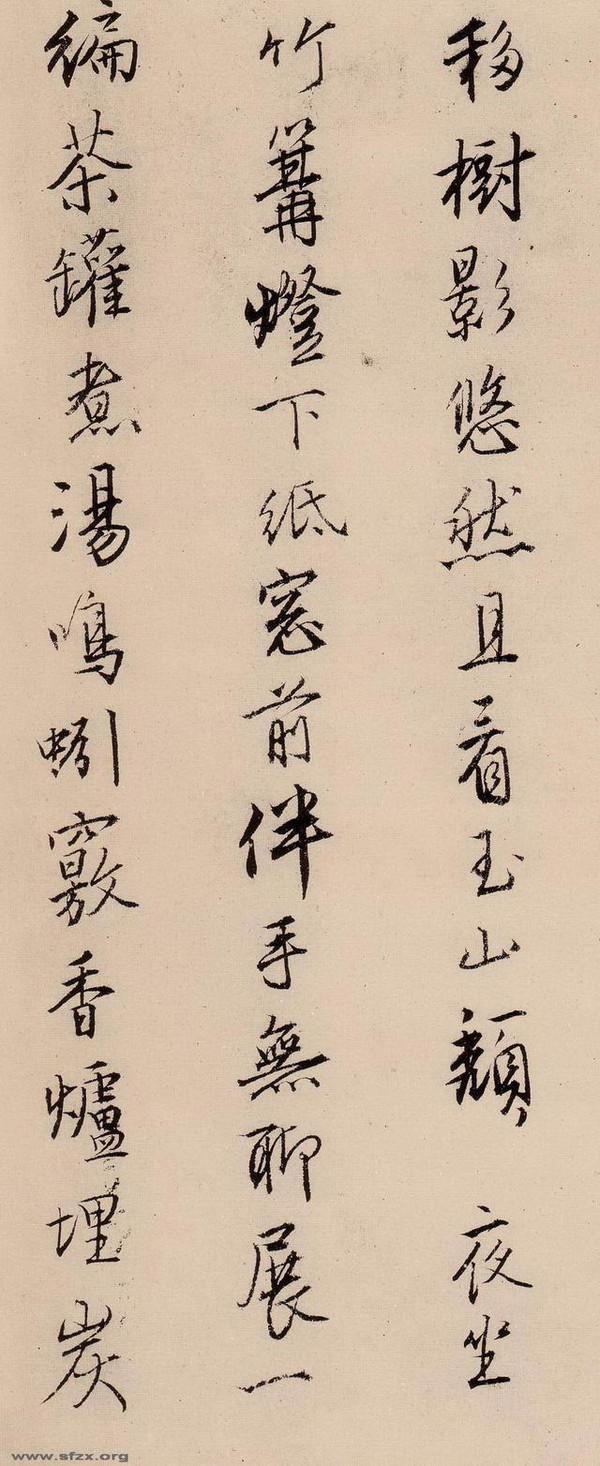 移樹影悠然且看玉山頹 夜坐
竹篝燈下紙窗前伴手無聊展一
編茶罐煮湯鳴蚓竅香爐埋炭
www.sfzx.org